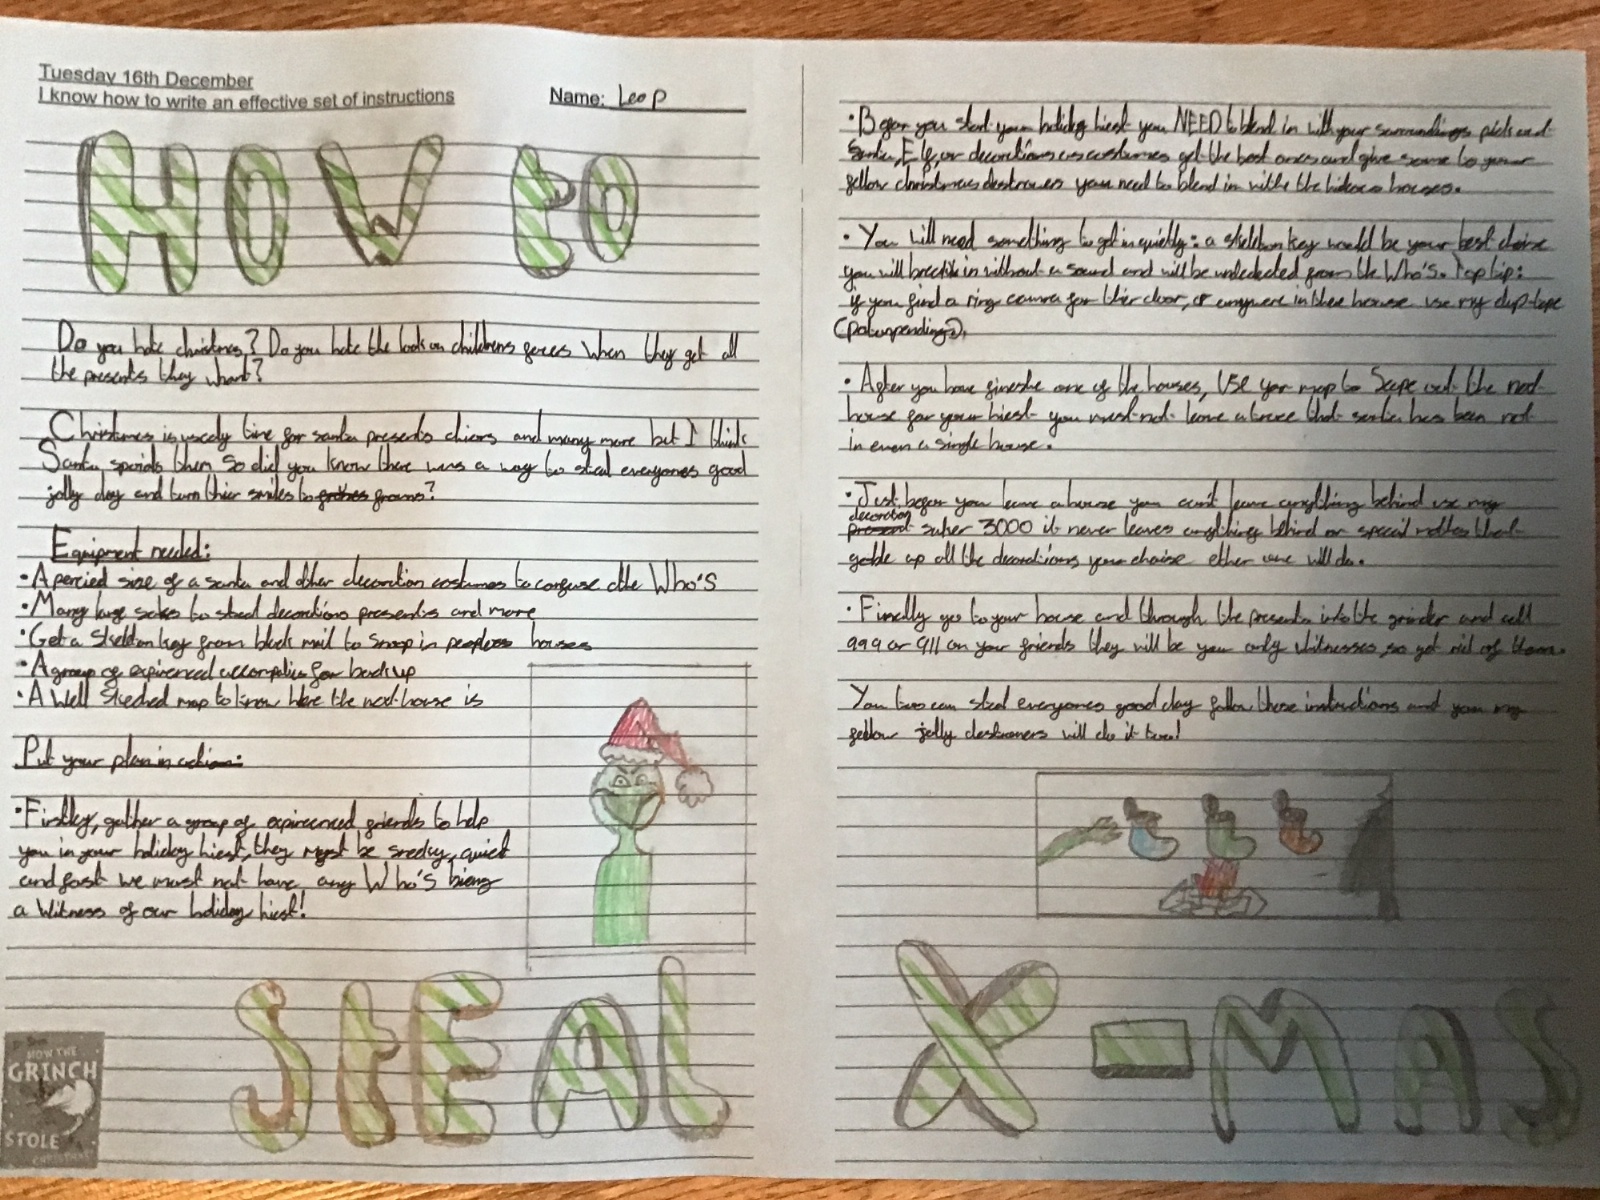 Tuesday 16th December
I know how to write an effective set of instructions
Name: Leo P
HOW to
Do you hate christmas? Do you hate the look on childrens faces when they get all
the presents they whant?
Christmas is usely time for santa presents chiers and many more but I think
Santa spoids them so did you know there was a way to steal everyones good
jolly day and turn thier smiles to frowns?
Equipment needed:
• A percied size of a santa and other decoration costumes to confuse the Who's
• Many large sakes to steal decorations presents and more
• Get a Skeleton key from black mail to snoop in peoples houses
• A group of expirenced accomplies for back up
• A Well Skeched map to know Where the next house is
Put your plan in action:
• Firstly, gather a group of expireenced friends to help
you in your holiday hiest, they must be sneaky, quiet
and fast we must not have any Who's bieng
a Witness of our holiday hiest!
STEAL
HOW THE
GRINCH
STOLE
CHRISTMAS!
• Befor you start your holiday hiest you NEED to blend in with your surroundings pick out
Santa, Elf, or decorations as custumes get the best ones and give some to your
fellow christmas destroyers you need to blend in with the hideous houses.
• You will need something to get in quietly: a skeleton key would be your best choise
you will break in without a sound and will be undedected from the Who's. Top tip:
if you find a ring camra for thier door, or anywere in thee house use my dup-tape
• After you have fineshe one of the houses, USE your map to Scope out the next
house for your hiest you must not leave a trace that santa has been not
in even a single house.
• Just befor you leave a house you can't leave anything behind use my
decoration
suker 3000 it never leaves anything behind or special mothes that
goble up all the decorations your choise ether one will do.
• Finally go to your house and through the presents into the grinder and call
999 or 911 on your friends they will be your only Witnesses so get rid of them.
You two can steal everyones good day follow these instructions and you my
fellow jolly destroyers will do it too!
X-MAS